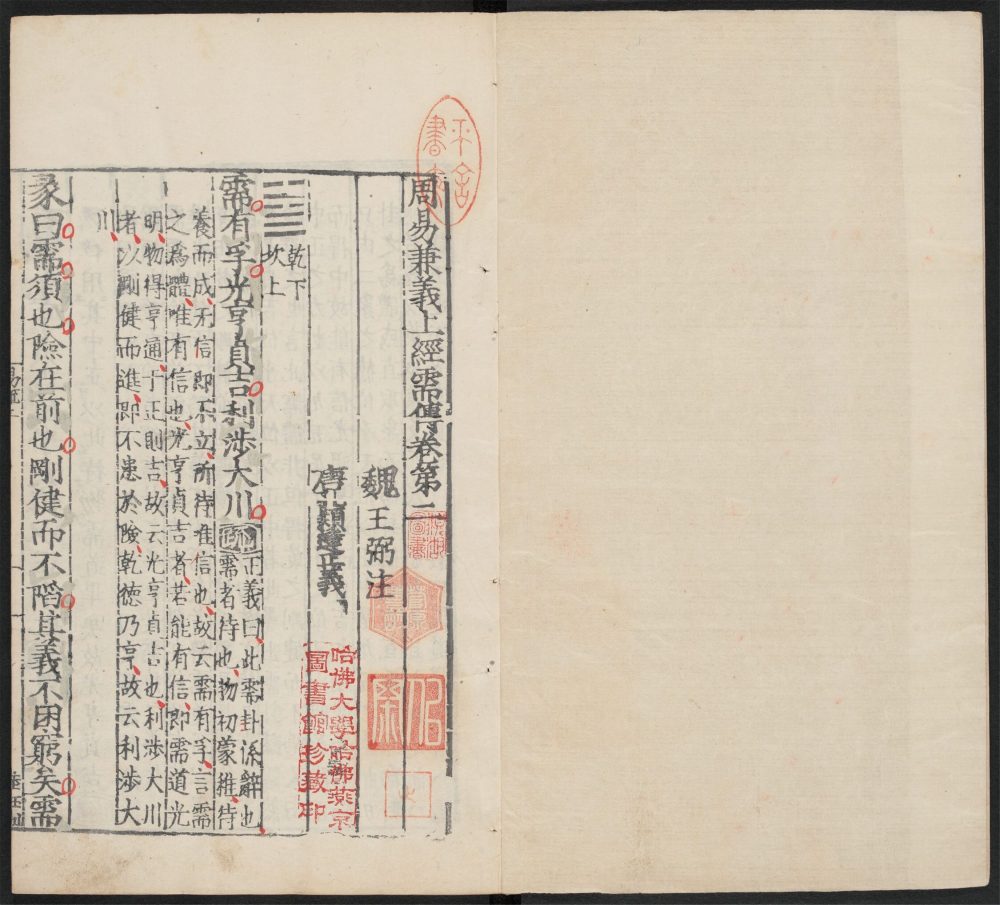 周易兼義上經需傳卷第二
魏王弼注
唐孔穎達正義
乾下
坎上
需有孚光亨貞吉利涉大川
疏
正義曰此需卦係辭也
需者待也物初蒙稚待
養而成无信即不立所待唯信也故云需有孚言需
之爲體唯有信也光亨貞吉者若能有信即需道光
明物得亨通于正則吉故云光亨貞吉也利涉大川
者以剛健而進即不患於險乾德乃亨故云利涉大
川
彖曰需須也險在前也剛健而不陷其義不困窮矣需
哈佛大學哈佛燕京
圖書館珍藏印